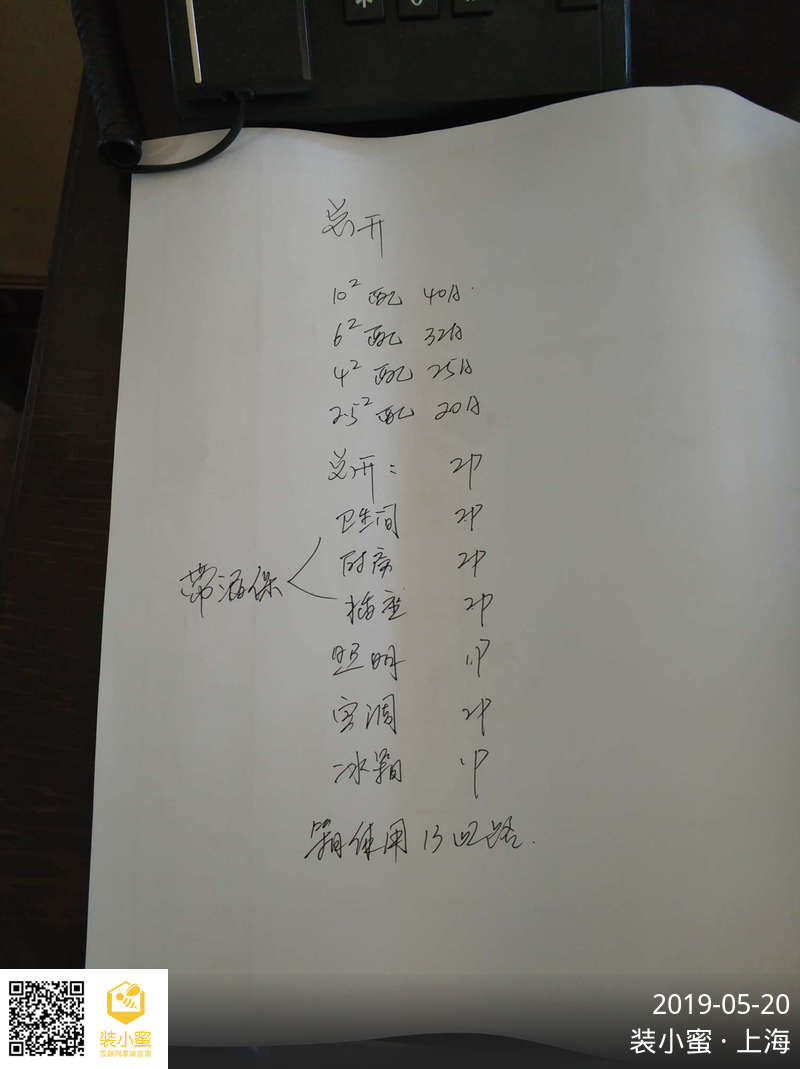 总开
10² 配 40A
6² 配 32A
4² 配 25A
2.5² 配 20A
总开: 2P
卫生间 2P
厨房 2P
带漏保
插座 2P
照明 1P
空调 2P
冰箱 1P
箱使用13回路.
装小蜜
互联网家装监理
2019-05-20
装小蜜·上海